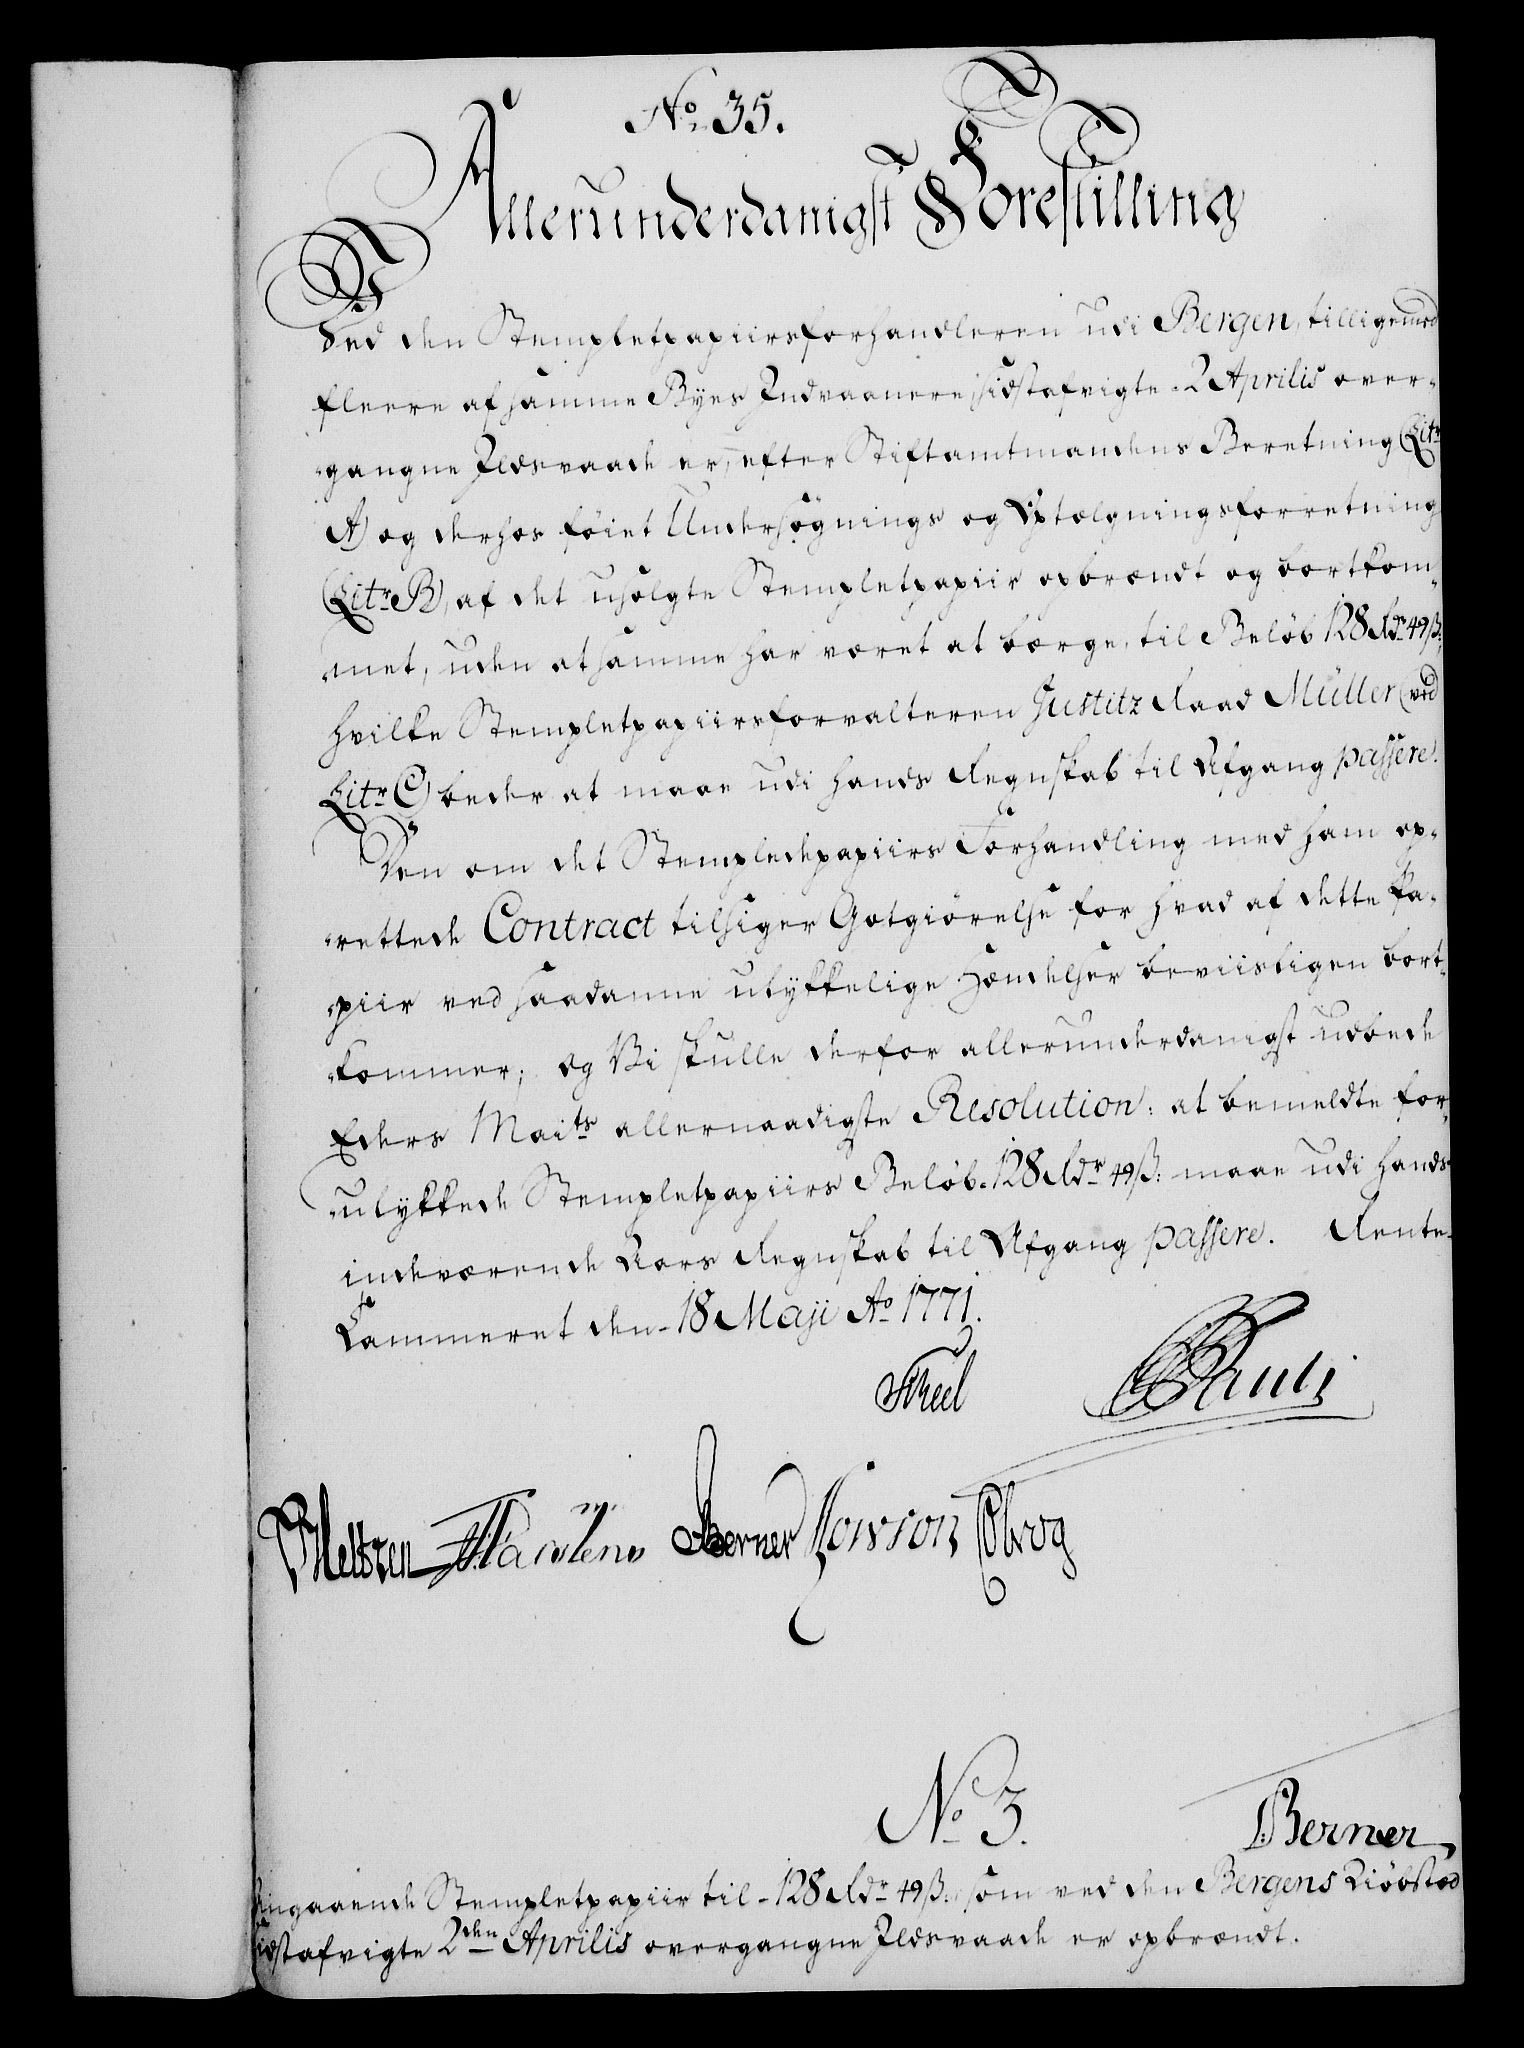 No. 35.
Allerunderdanigst Forestilling
Ved den Stempletpapiirsforhandleren udi Bergen, tilligemed
fleere af samme Byes Indvaanere, sidstafvigte 2 Aprilis over-
gangne Ildsvaade er, efter Stiftamtmandens Beretning (Litr
A) og derhos føiet Undersøgnings og Optælgningsforretning
(Litr. B), af det usolgte Stempletpapiir opbrændt og bortkom-
met, uden at samme har været at bærge, til Beløb 128 Rdr 49 ß,
hvilke Stempletpapiirsforvalteren Justitz Raad Müller (ved
Litr C) beder at maae udi hands Regnskab til Afgang passere.
Den om det Stempledepapiirs Forhandling med ham op-
rettede Contract tilsiger Godtgiørelse for hvad af dette Pa-
piir ved saadanne ulykkelige Hændelser beviisligen bort-
kommer; og Vi skulle derfor allerunderdanigst udbede
Eders Maits allernaadigste Resolution: at bemeldte for-
ulykkede Stempletpapiirs Beløb 128 Rdr 49 ß: maae udi hands
indeværende Aars Regnskab til Afgang passere. Rente-
Cammeret den 18 Maji Ao 1771.
Scheel Pauli
Meltzen Berner Lowson Obrog
No 3. Berner
Angaaende Stempletpapiir til 128 Rdr 49 ß: som ved den Bergens Kiøbstæd
sidstafvigte 2den Aprilis overgangne Ildsvaade er opbrændt.